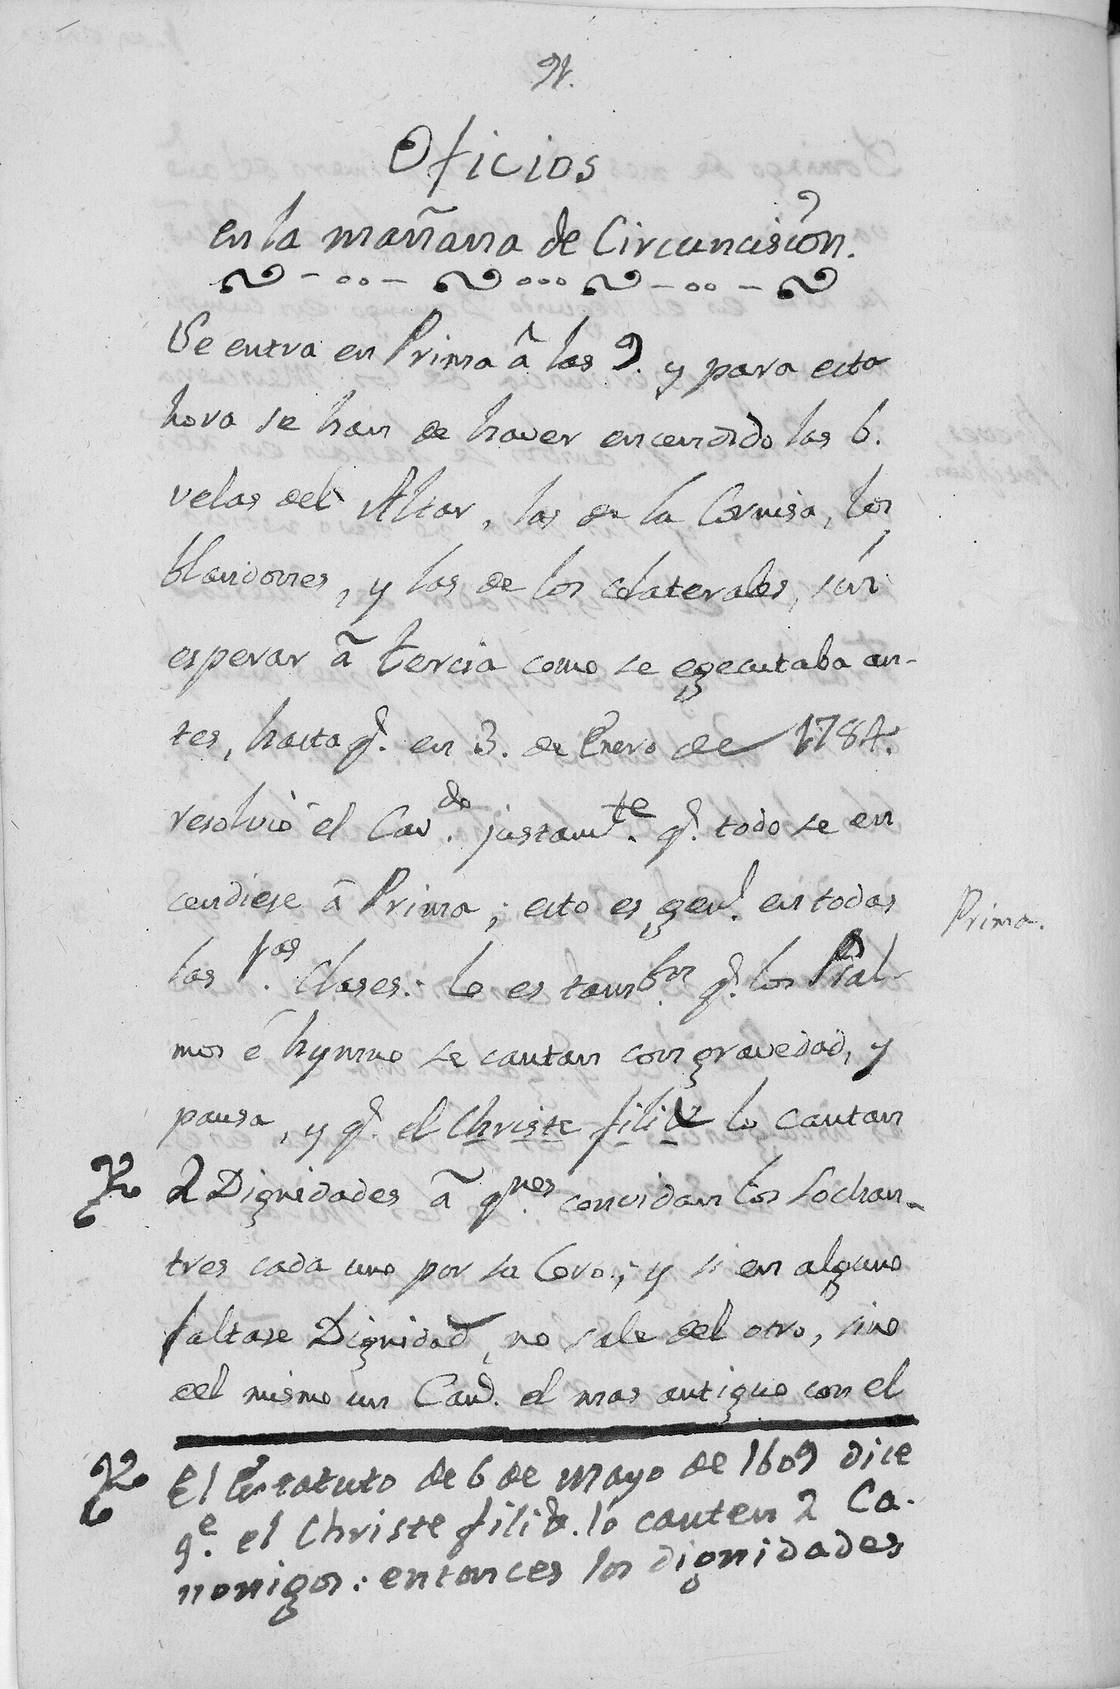 91.
Oficios
en la mañana de Circuncisiòn.
Se entra en Prima â las 9. y para esta
hora se han de haver encendido las 6.
velas del Altar, las de la Cornisa, los
blandones, y las de los colaterales, sin
esperar â tercia como se egecutaba an-
tes, hasta q.e en 3. de Enero de 1784.
resolviò el Cav.do justam.te q.e todo se en
cendiese â Prima; esto es gen.l en todas
Prima.
las 1.as Clases: lo es tamb.n q.e los Psal-
mos é hymno se cantan con gravedad, y
pausa, y q.e el Christe fili & lo cantan
2 Dignidades â q.nes convidan los Sochan-
tres cada uno por su Coro; y si en alguno
faltase Dignidad, no sale del otro, sino
del mismo un Can.º el mas antiguo con el
El Estatuto de 6 de Mayo de 1609 dice
q.e el Christe fili &. lo canten 2 Ca-
nonigos: entonces los dignidades